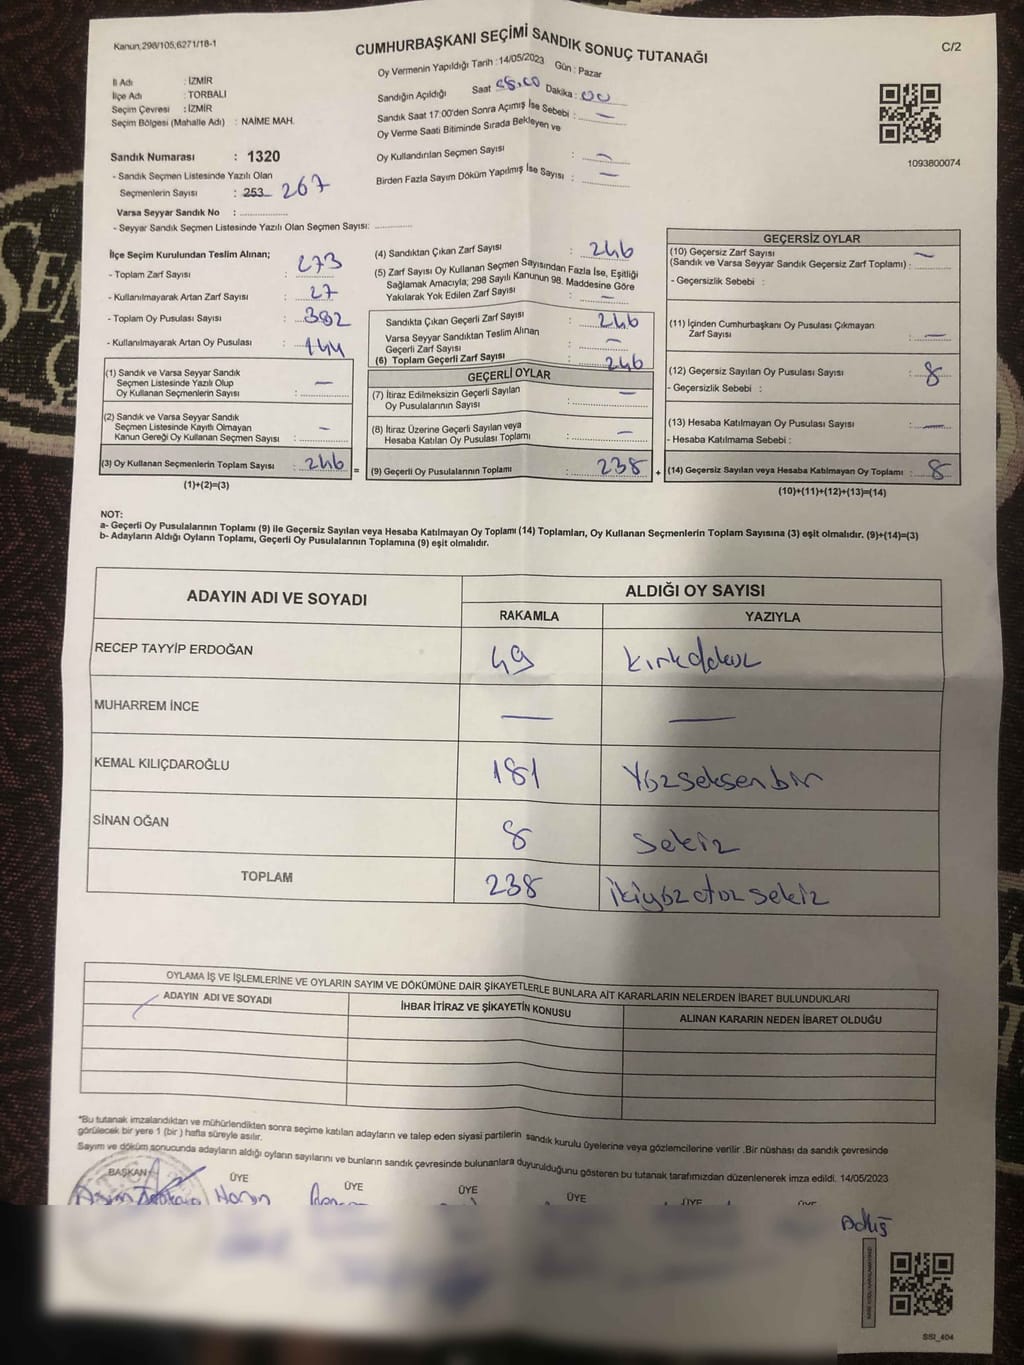 Kanun:298/105,6271/18-1
CUMHURBAŞKANI SEÇİMİ SANDIK SONUÇ TUTANAĞI
C/2
Oy Vermenin Yapıldığı Tarih : 14/05/2023 Gün : Pazar
İl Adı : İZMİR
İlçe Adı : TORBALI
Seçim Çevresi : İZMİR
Seçim Bölgesi (Mahalle Adı) : NAİME MAH.
Sandığın Açıldığı Saat Dakika : 00
Sandık Saat 17:00'den Sonra Açımış İse Sebebi : —
Oy Verme Saati Bitiminde Sırada Bekleyen ve
Oy Kullandırılan Seçmen Sayısı : —
Birden Fazla Sayım Döküm Yapılmış İse Sayısı : —
1093800074
Sandık Numarası : 1320
- Sandık Seçmen Listesinde Yazılı Olan
Seçmenlerin Sayısı : 253 267
Varsa Seyyar Sandık No :
- Seyyar Sandık Seçmen Listesinde Yazılı Olan Seçmen Sayısı:
İlçe Seçim Kurulundan Teslim Alınan;
- Toplam Zarf Sayısı : 273
- Kullanılmayarak Artan Zarf Sayısı : 27
- Toplam Oy Pusulası Sayısı : 382
- Kullanılmayarak Artan Oy Pusulası : 144
(1) Sandık ve Varsa Seyyar Sandık
Seçmen Listesinde Yazılı Olup
Oy Kullanan Seçmenlerin Sayısı : —
(2) Sandık ve Varsa Seyyar Sandık
Seçmen Listesinde Kayıtlı Olmayan
Kanun Gereği Oy Kullanan Seçmen Sayısı : —
(3) Oy Kullanan Seçmenlerin Toplam Sayısı : 246 =
(1)+(2)=(3)
(4) Sandıktan Çıkan Zarf Sayısı : 246
(5) Zarf Sayısı Oy Kullanan Seçmen Sayısından Fazla İse, Eşitliği
Sağlamak Amacıyla; 298 Sayılı Kanunun 98. Maddesine Göre
Yakılarak Yok Edilen Zarf Sayısı : —
Sandıkta Çıkan Geçerli Zarf Sayısı : 246
Varsa Seyyar Sandıktan Teslim Alınan
Geçerli Zarf Sayısı : —
(6) Toplam Geçerli Zarf Sayısı : 246
GEÇERLİ OYLAR
(7) İtiraz Edilmeksizin Geçerli Sayılan
Oy Pusulalarının Sayısı : —
(8) İtiraz Üzerine Geçerli Sayılan veya
Hesaba Katılan Oy Pusulası Toplamı : —
(9) Geçerli Oy Pusulalarının Toplamı : 238 +
GEÇERSİZ OYLAR
(10) Geçersiz Zarf Sayısı
(Sandık ve Varsa Seyyar Sandık Geçersiz Zarf Toplamı) : —
- Geçersizlik Sebebi :
(11) İçinden Cumhurbaşkanı Oy Pusulası Çıkmayan
Zarf Sayısı : —
(12) Geçersiz Sayılan Oy Pusulası Sayısı : 8
- Geçersizlik Sebebi :
(13) Hesaba Katılmayan Oy Pusulası Sayısı : —
- Hesaba Katılmama Sebebi :
(14) Geçersiz Sayılan veya Hesaba Katılmayan Oy Toplamı : 8
(10)+(11)+(12)+(13)=(14)
NOT:
a- Geçerli Oy Pusulalarının Toplamı (9) ile Geçersiz Sayılan veya Hesaba Katılmayan Oy Toplamı (14) Toplamları, Oy Kullanan Seçmenlerin Toplam Sayısına (3) eşit olmalıdır. (9)+(14)=(3)
b- Adayların Aldığı Oyların Toplamı, Geçerli Oy Pusulalarının Toplamına (9) eşit olmalıdır.
ADAYIN ADI VE SOYADI
ALDIĞI OY SAYISI
RAKAMLA YAZIYLA
RECEP TAYYİP ERDOĞAN 49 kırkdokuz
MUHARREM İNCE — —
KEMAL KILIÇDAROĞLU 181 Yüzseksenbir
SİNAN OĞAN 8 Sekiz
TOPLAM 238 ikiyüz otuz sekiz
OYLAMA İŞ VE İŞLEMLERİNE VE OYLARIN SAYIM VE DÖKÜMÜNE DAİR ŞİKAYETLERLE BUNLARA AİT KARARLARIN NELERDEN İBARET BULUNDUKLARI
ADAYIN ADI VE SOYADI İHBAR İTİRAZ VE ŞİKAYETİN KONUSU ALINAN KARARIN NEDEN İBARET OLDUĞU
*Bu tutanak imzalandıktan ve mühürlendikten sonra seçime katılan adayların ve talep eden siyasi partilerin sandık kurulu üyelerine veya gözlemcilerine verilir .Bir nüshası da sandık çevresinde
görülecek bir yere 1 (bir ) hafta süreyle asılır.
Sayım ve döküm sonucunda adayların aldığı oyların sayılarını ve bunların sandık çevresinde bulunanlara duyurulduğunu gösteren bu tutanak tarafımızdan düzenlenerek imza edildi. 14/05/2023
BAŞKAN ÜYE ÜYE ÜYE ÜYE ÜYE
SSI_404